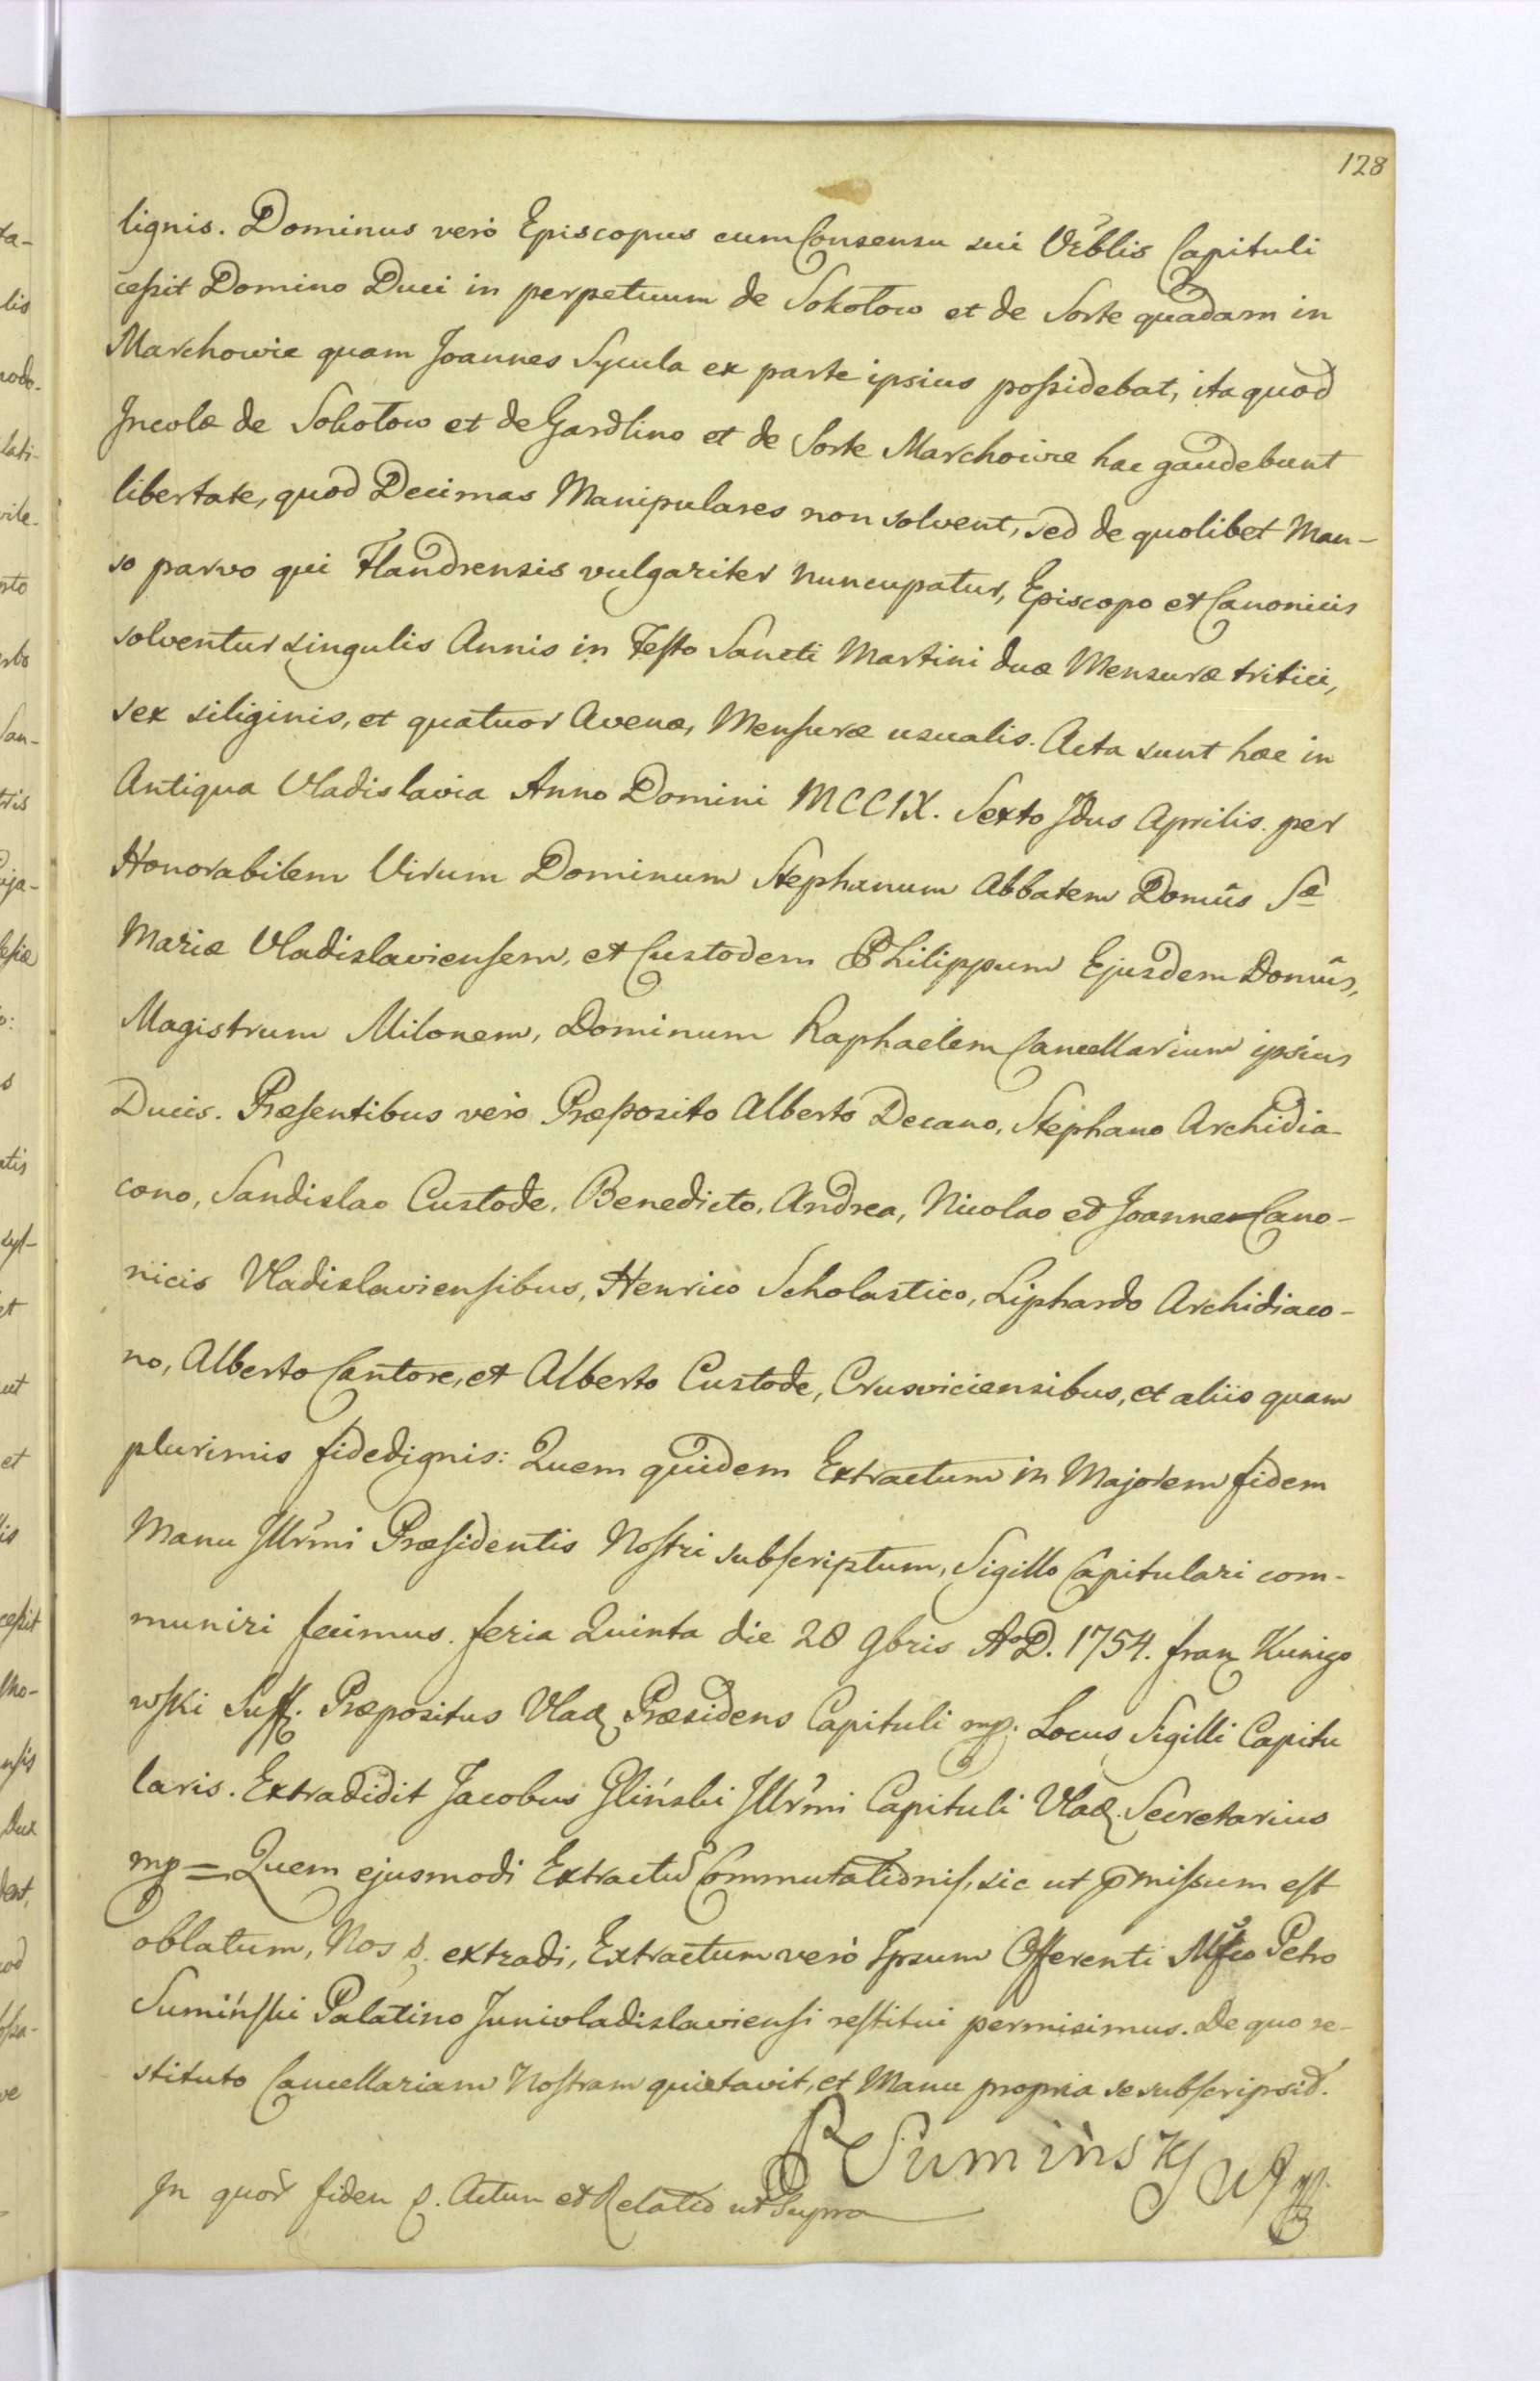 128
lignis. Dominus verò Episcopus cum Consensu sui Vrblis Capituli
cessit Domino Duci in perpetuum de Sokołow et de Sorte quadam in
Marchowie quam Joannes Sycula ex parte ipsius possidebat, ita quod
Incolæ de Sokołow et de Gardlino et de Sorte Marchowie hac gaudebunt
libertate, quod Decimas Manipulares non solvent, sed de quolibet Man-
so parvo qui Flandrensis vulgariter nuncupatur, Episcopo et Canonicis
solventur singulis Annis in Festo Sancti Martini duæ Mensuræ tritici,
sex siliginis, et quatuor Avenæ, Mensuræ usualis. Acta sunt hæc in
Antiqua Vladislavia Anno Domini MCCIX. Sexto Idus Aprilis. per
Honorabilem Virum Dominum Stephanum Abbatem Domûs Sæ
Mariæ Vladislaviensem, et Custodem Philippum Ejusdem Domûs,
Magistrum Milonem, Dominum Raphaelem Cancellarium ipsius
Ducis. Præsentibus verò Præposito Alberto Decano, Stephano Archidia
cono, Sandislao Custode, Benedicto, Andrea, Nicolao et Joanne Cano-
nicis Vladislaviensibus, Henrico Scholastico, Liphardo Archidiaco-
no, Alberto Cantore, et Alberto Custode, Crusviciensibus, et aliis quam
plurimis fidedignis: Quem quidem Extractum in Majorem fidem
Manu Illrmi Præsidentis Nostri subscriptum, Sigillo Capitulari com-
muniri fecimus. feria Quinta die 28 9bris A°D. 1754. Franz Kanigo
wski Suff. Præpositus Vlad Præsidens Capituli mp. Locus Sigilli Capitu
laris. Extradidit Jacobus Gliński Illrmi Capituli Vlad. Secretarius
mp = Quem ejusmodi Extractū Commutationis, sic ut pmissum est
oblatum, Nos extradi, Extractum verò Ipsum Offerenti Mfco Petro
Sumiński Palatino Junivladislaviensi restitui permisimus. De quo re-
stituto Cancellariam Nostram quietavit, et Manu propria se subscripsit.
P Sumińsky WJ mp
In quor fidem Actum et Relatio ut Supra